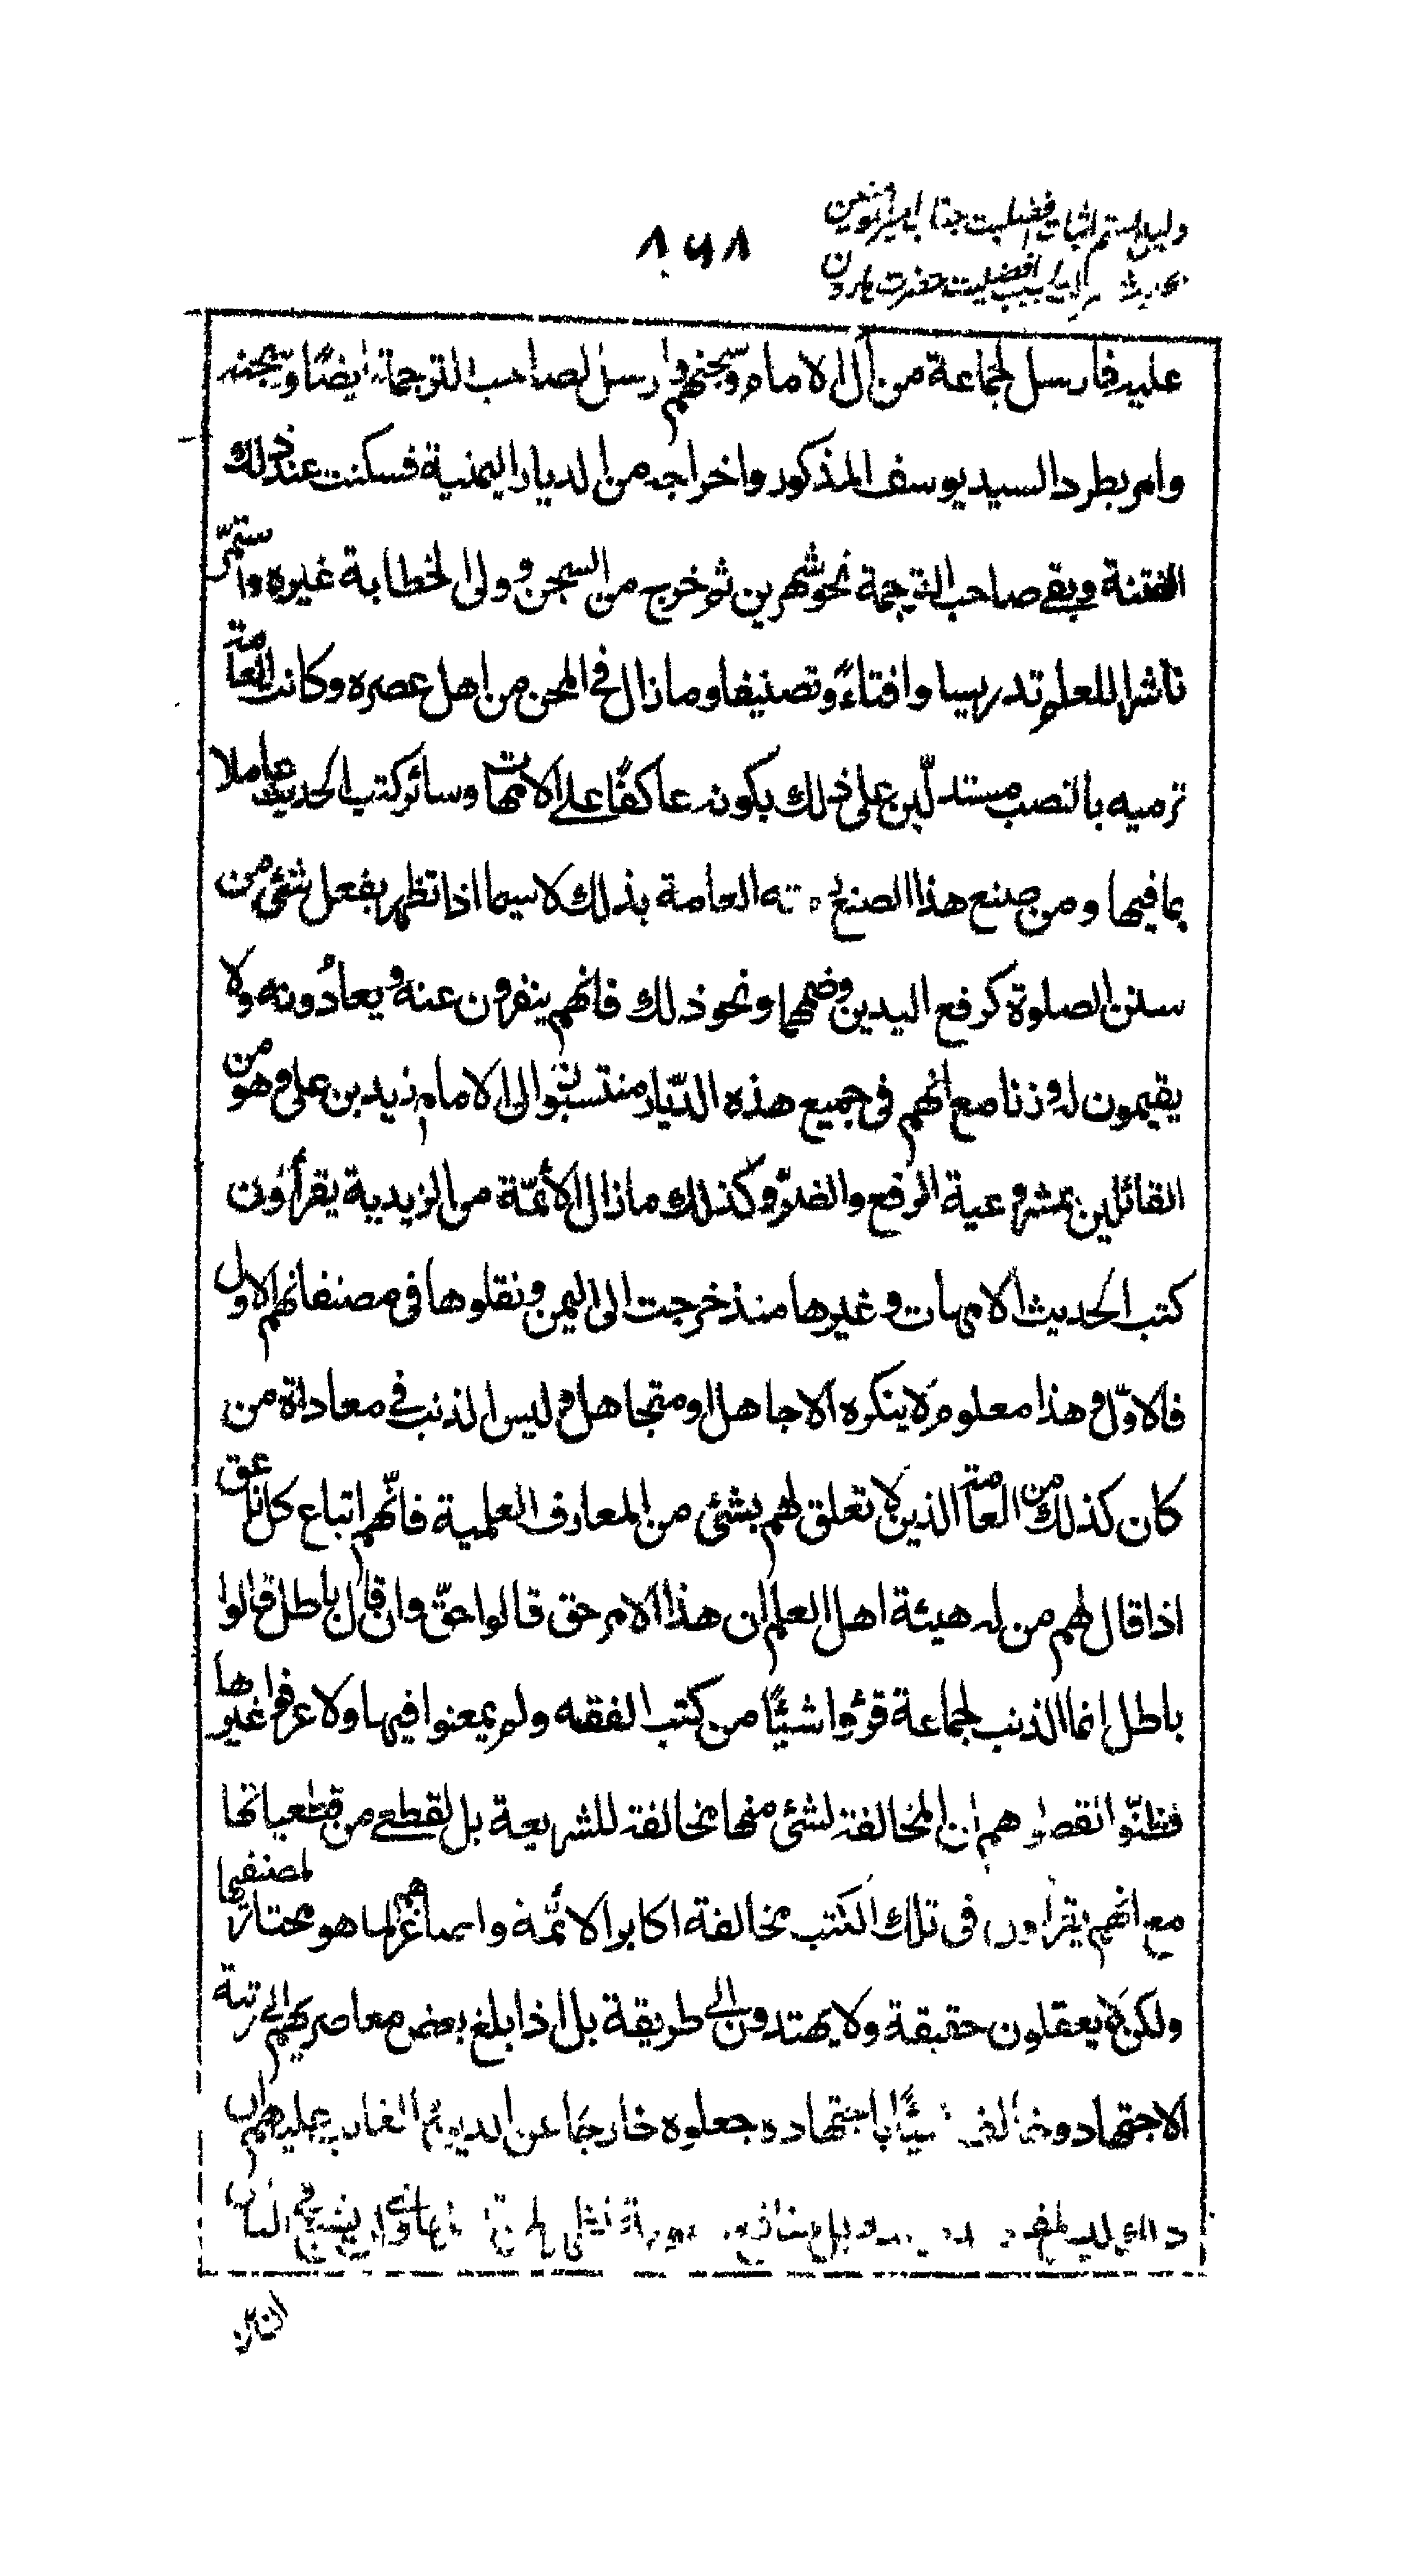 دلیل هشتم اثبات افضلیت جناب امیرالمؤمنین
بحدیث منزلت بسبب افضلیت حضرت هارون
۸۶۸
عليه فارسل لجماعة من آل الامام وسجنهم وارسل لصاحب الترجمة ايضًا وسجنه
وامر بطرد السيد يوسف المذكور واخراجه من الديار اليمنية فسكنت عند ذلك
الفتنة وبقے صاحب الترجمة نحو شهرين ثم خرج من السجن وولى الخطابة غيره واستمرّ
ناشرا للعلم تدريسا وافتاءً وتصنيفا وما زال فى المحن من اهل عصره وكانت العامة
ترميه بالنصب مستدلّين على ذلك بكونه عاكفًا علے الامهات وسائر كتب الحديث عاملا
بما فيها ومن صنع هذا الصنع العامة بذلك لا سيما اذا تظهر بفعل شئ من
سنن الصلوة كرفع اليدين وضمهما ونحو ذلك فانهم ينفرون عنه ويعادُونه ولا
يقيمون له وزنا مع انهم فى جميع هذه الديّار منتسبون الى الامام زيد بن على وهو من
القائلين بمشروعية الرفع والضمّ وكذلك ما زال الأئمّة من الزيدية يقرأون
كتب الحديث الامهات وغيرها منذ خرجت الى اليمن ونقلوها فى مصنفاتهم الاول
فالاوّل وهذا معلوم لا ينكره الا جاهل او متجاهل وليس الذنب فے معاداة من
كان كذلك من العامة الذين لا تعلق لهم بشئ من المعارف العلمية فانّهم اتباع كل ناعق
اذا قال لهم من له هيئة اهل العلم ان هذا الامر حق قالوا حقّ وان قال باطل قالوا
باطل انما الذنب لجماعة قرؤا شيئًا من كتب الفقه ولم يمعنوا فيها ولا عرفوا غيرها
فظنّوا لقصورهم ان المخالفة لشئ منها مخالفة للشريعة بل لقطعے من قطعياتها
مع انهم يقراون فى تلك الكتب مخالفة اكابر الائمة واصاغرهم لما هو مختار لمصنفيها
ولكن لا يعقلون حقيقة ولا يهتدون الے طريقة بل اذا بلغ بعض معاصريهم الے رتبة
الاجتهاد وخالف شيئًا باجتهاده جعلوه خارجًا عن الدين الغالب عليهم ان
ذلك ليس بل